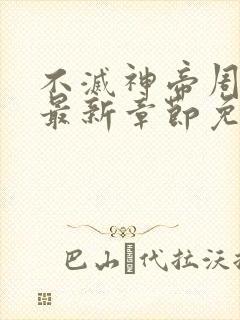 不滅神帝周
最新章節免
巴山 代拉沃